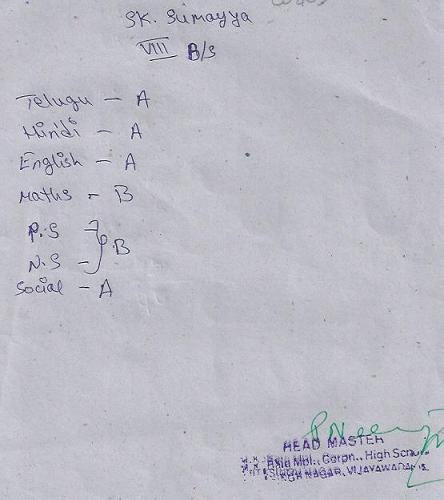 SK. Sumayya
VIII B/S
Telugu - A
Hindi - A
English - A
Maths - B
P.S -
N.S - } B
Social - A
HEAD MASTER
Mpl., Corpn., High
NAGAR, VIJAYAWADA